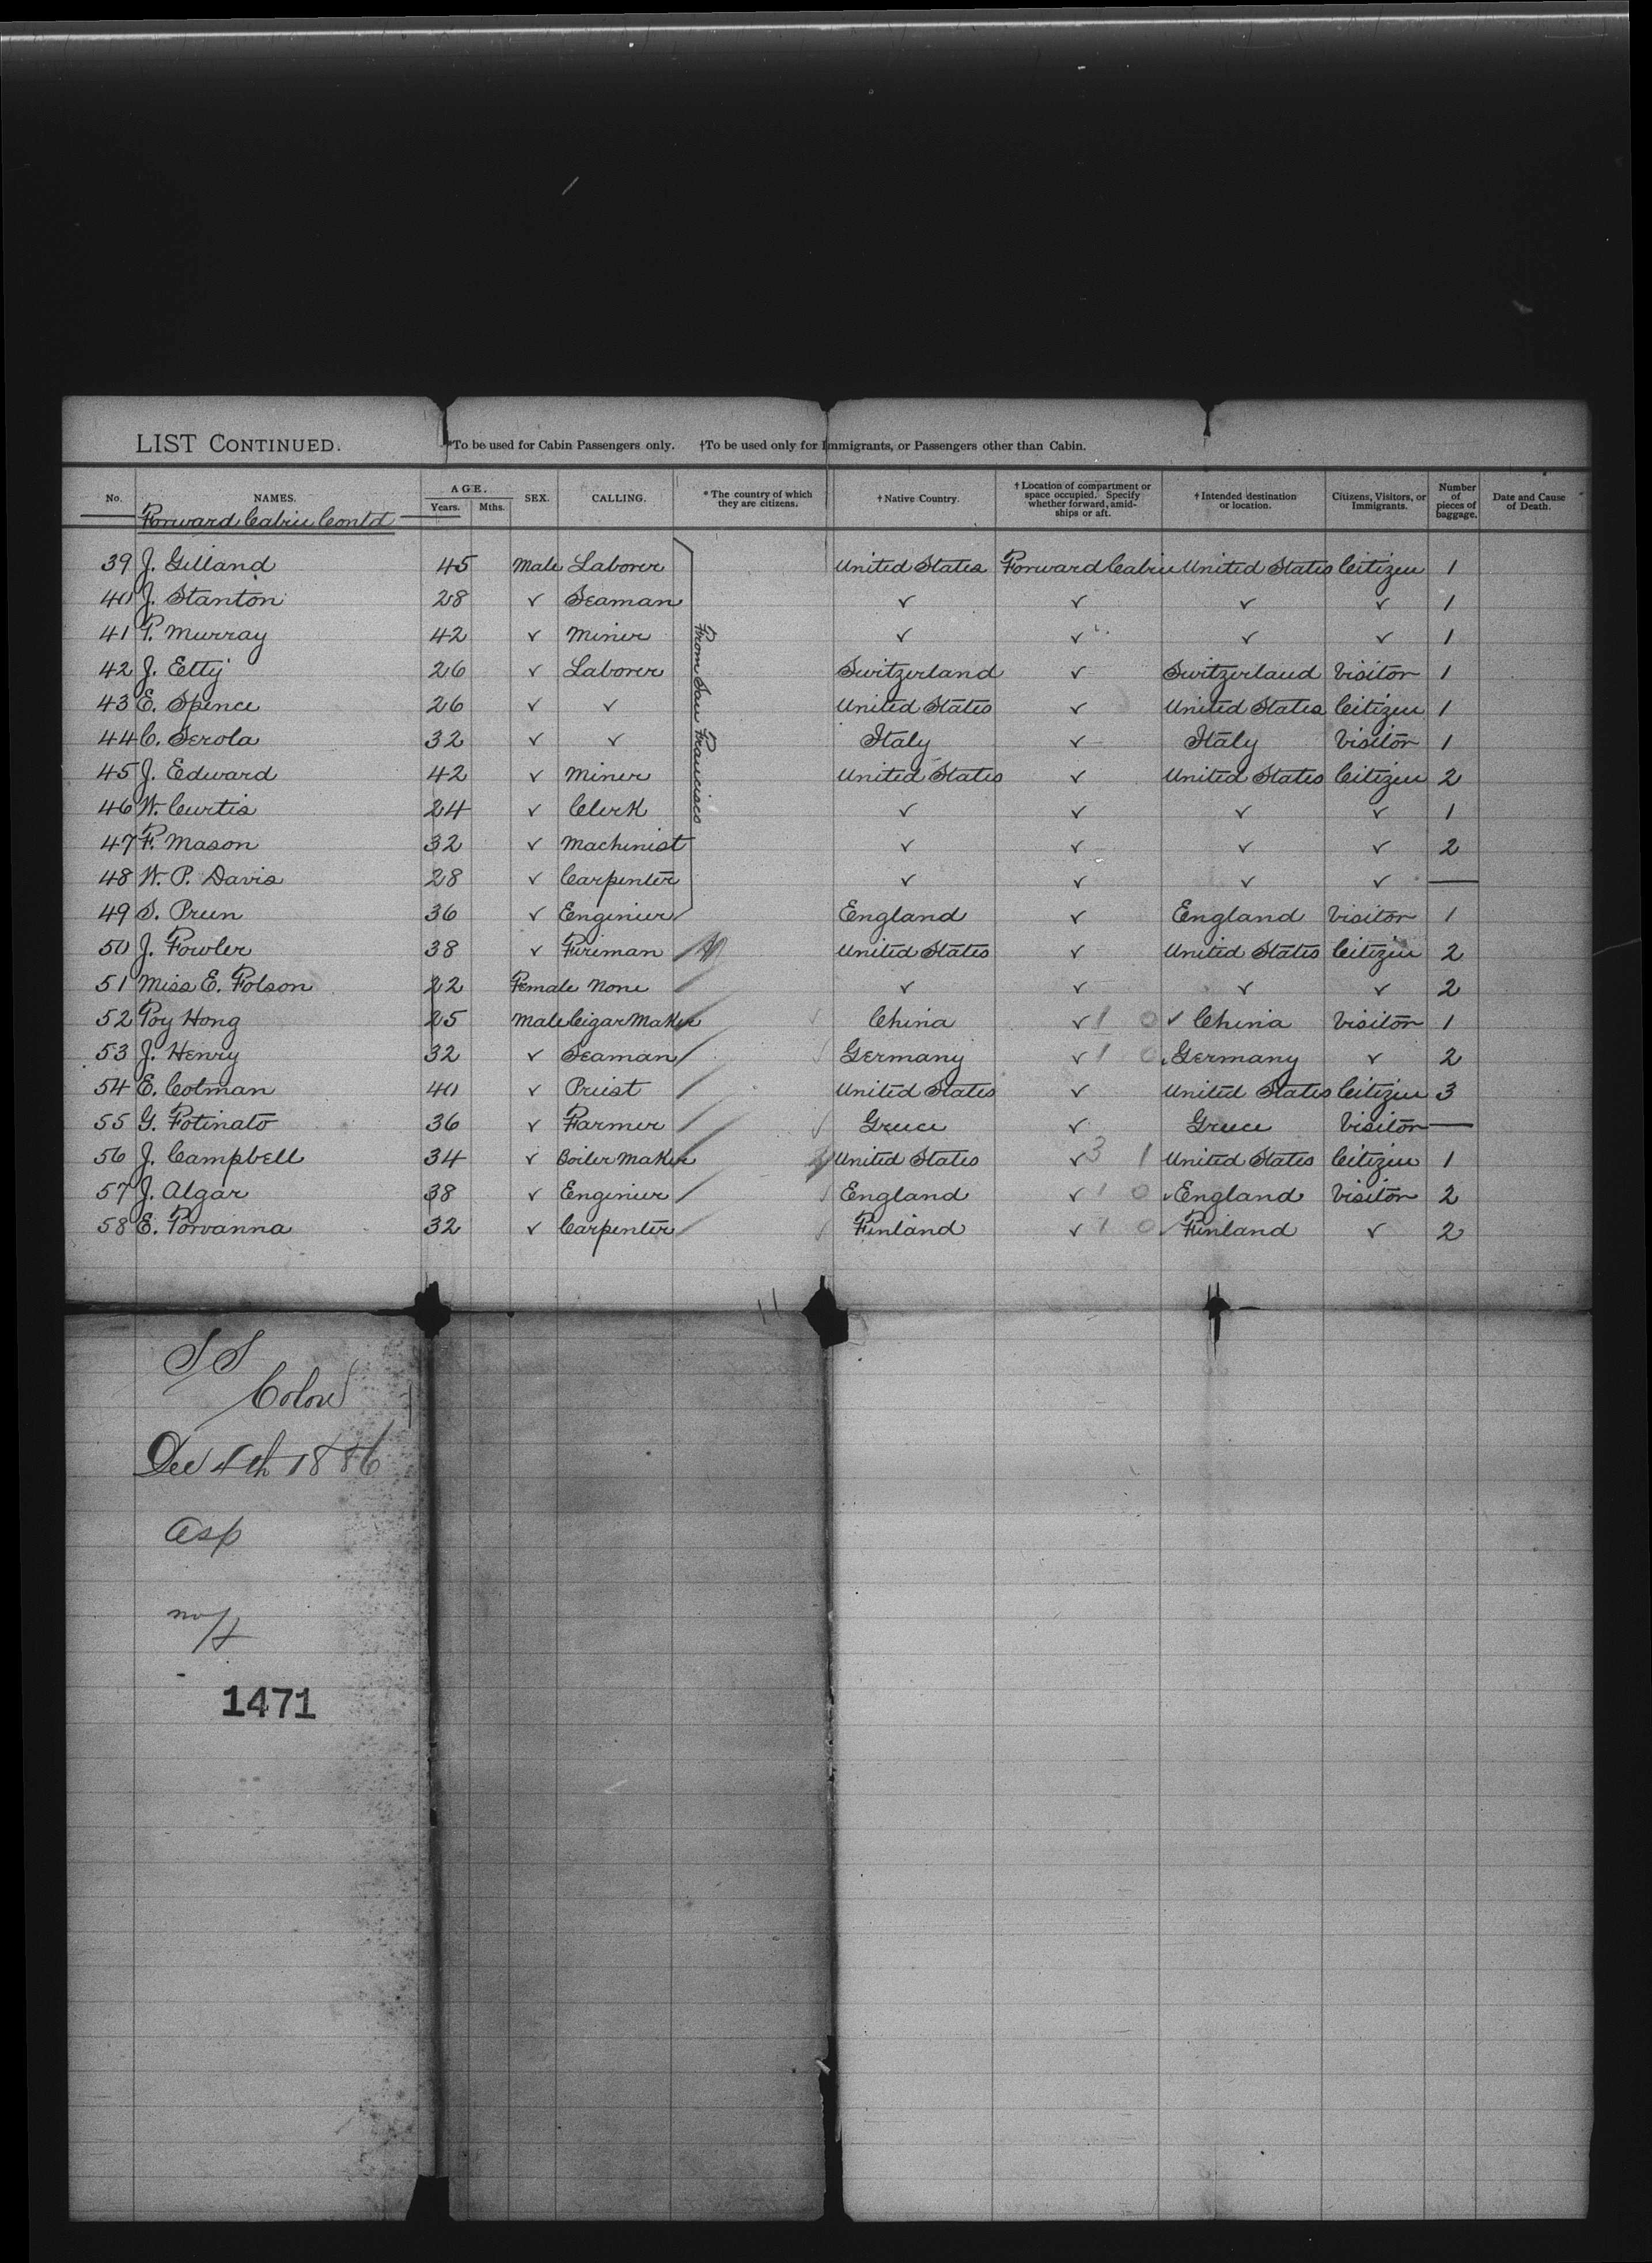 LIST CONTINUED. *To be used for Cabin Passengers only. †To be used only for Immigrants, or Passengers other than Cabin.
No. NAMES. AGE. Years. Mths. SEX. CALLING. * The country of which they are citizens. † Native Country. † Location of compartment or space occupied. Specify whether forward, amidships or aft. † Intended destination or location. Citizens, Visitors, or Immigrants. Number of pieces of baggage. Date and Cause of Death.
Forward Cabin Contd
From San Francisco
39 J. Gilland 45 Male Laborer United States Forward Cabin United States Citizen 1
40 J. Stanton 28 ✓ Seaman ✓ ✓ ✓ ✓ 1
41 P. Murray 42 ✓ Miner ✓ ✓ ✓ ✓ 1
42 J. Etty 26 ✓ Laborer Switzerland ✓ Switzerland Visitor 1
43 E. Spence 26 ✓ ✓ United States ✓ United States Citizen 1
44 C. Serola 32 ✓ ✓ Italy ✓ Italy Visitor 1
45 J. Edward 42 ✓ Miner United States ✓ United States Citizen 2
46 W. Curtis 24 ✓ Clerk ✓ ✓ ✓ ✓ 1
47 F. Mason 32 ✓ Machinist ✓ ✓ ✓ ✓ 2
48 W. P. Davis 28 ✓ Carpenter ✓ ✓ ✓ ✓ —
49 S. Preen 36 ✓ Engineer England ✓ England Visitor 1
50 J. Fowler 38 ✓ Fireman United States ✓ United States Citizen 2
51 Miss E. Folson 22 Female None ✓ ✓ ✓ ✓ 2
52 Poy Hong 25 Male Cigar Maker China ✓ 1 0 ✓ China Visitor 1
53 J. Henry 32 ✓ Seaman Germany ✓ 1 0 Germany ✓ 2
54 E. Colman 40 ✓ Priest United States ✓ United States Citizen 3
55 G. Fotinato 36 ✓ Farmer Greece ✓ Greece Visitor —
56 J. Campbell 34 ✓ Boiler Maker United States ✓ 3 1 United States Citizen 1
57 J. Algar 38 ✓ Engineer England ✓ 1 0 England Visitor 2
58 E. Porvanna 32 ✓ Carpenter Finland ✓ 1 0 Finland ✓ 2
11
SS
Colon
Dec 4th 1886
Asp
1471